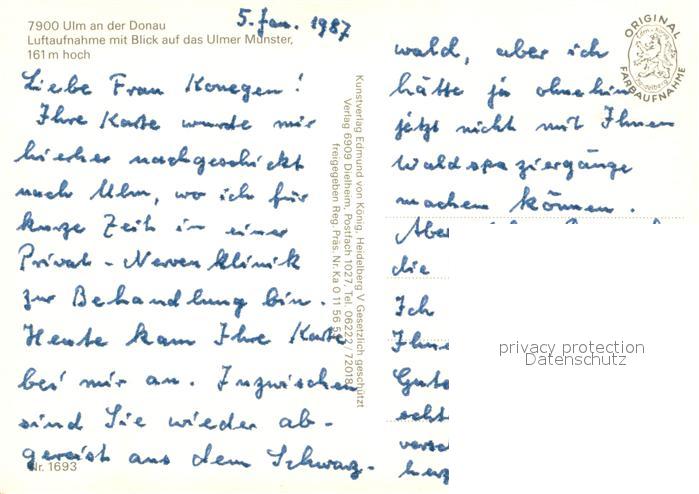 7900 Ulm an der Donau
Luftaufnahme mit Blick auf das Ulmer Münster,
161 m hoch
5. Jan. 1987
Liebe Frau Konegen!
Ihre Karte wurde mir
hierher nachgeschickt
nach Ulm, wo ich für
kurze Zeit in einer
Privat-Nervenklinik
zur Behandlung bin.
Heute kam Ihre Karte
bei mir an. Inzwischen
sind Sie wieder ab-
gereist aus dem Schwarz-
Nr. 1693
Kunstverlag Edmund von König, Heidelberg V Gesetzlich geschützt
Verlag 6909 Dielheim, Postfach 1027, Tel. 06222 / 72018
freigegeben Reg. Präs. Nr. Ka 0 11 56 5
ORIGINAL
FARBAUFNAHME
wald, aber ich
hätte ja ohnehin
jetzt nicht mit Ihnen
Waldspaziergänge
machen können.
Aber
die
Ich
Ihne
Gute
echt
versc
herz
privacy protection
Datenschutz